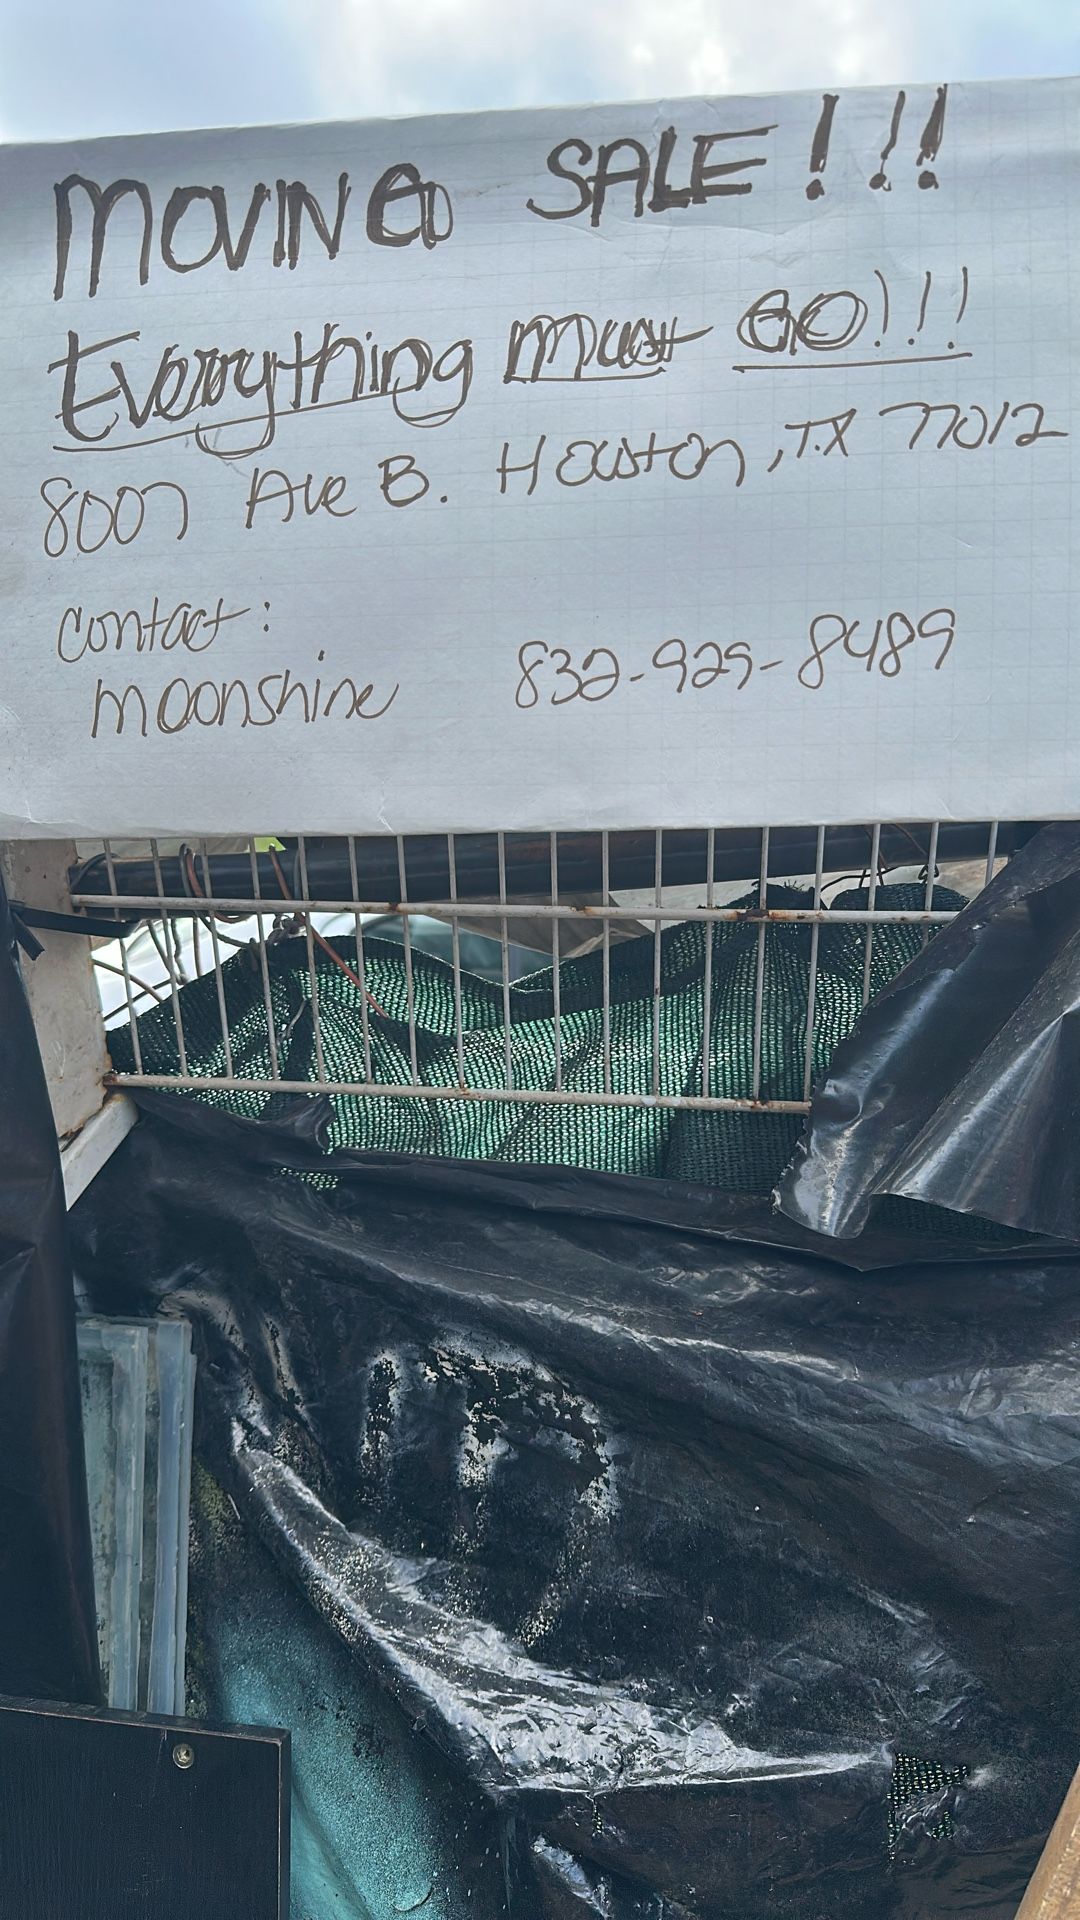 MOVING SALE!!!
Everything must GO!!!
8007 Ave B. Houston, TX 77012
contact:
moonshine 832-929-8489